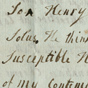 Son Henry
Solus, We think
Susceptible
of my Conten